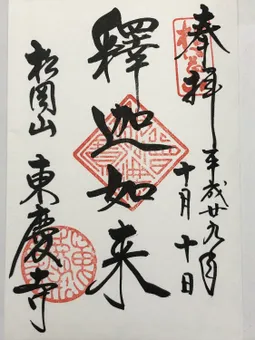 奉拝
平成廿九年
十月十日
釋迦如来
松岡山
東慶寺